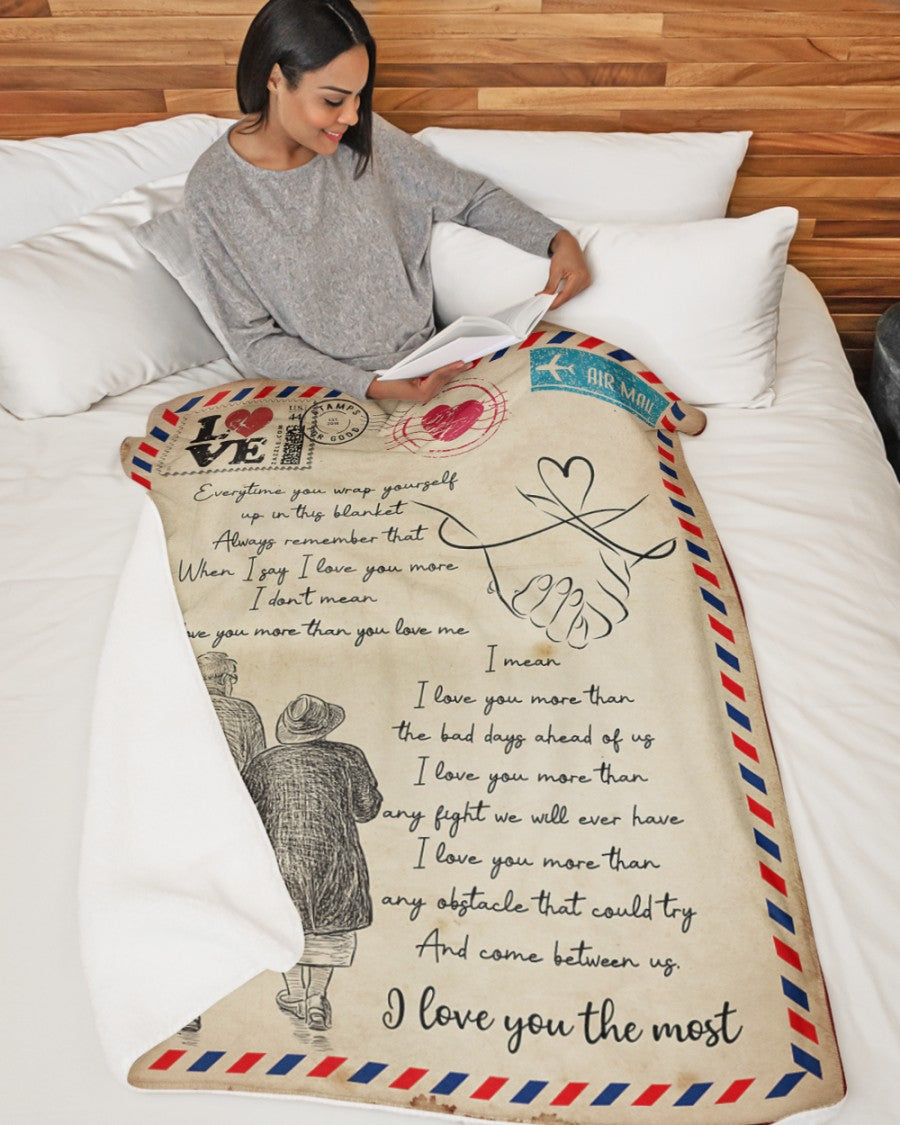 LOVE
U.S.
44
ZAZZLE.COM
STAMPS
EST. 2019
R GOOD
AIR MAIL
Everytime you wrap yourself
up in this blanket
Always remember that
When I say I love you more
I don't mean
ove you more than you love me
I mean
I love you more than
the bad days ahead of us
I love you more than
any fight we will ever have
I love you more than
any obstacle that could try
And come between us.
I love you the most